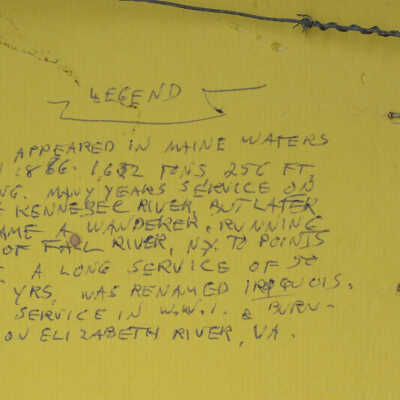 LEGEND
APPEARED IN MAINE WATERS
1866. 1,612 TONS 256 FT,
NG. MANY YEARS SERVICE ON
KENNEBEC RIVER, BUT LATER
AME A WANDERER, RUNNING
OF FALL RIVER, NY. TO POINTS
A LONG SERVICE OF 50
YRS, WAS RENAMED IROQUOIS.
SERVICE IN W.W.1. & BURN-
ON ELIZABETH RIVER, VA.